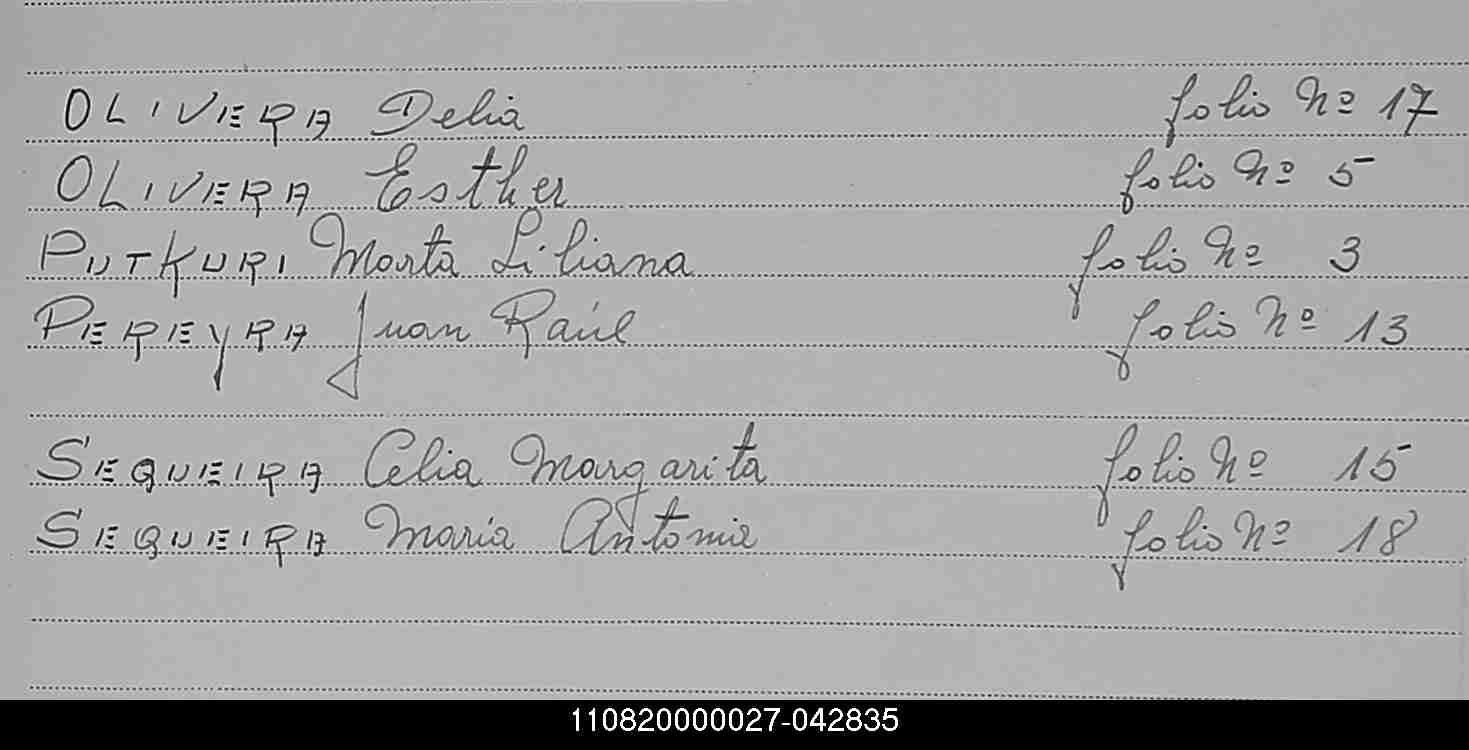 OLIVERA Delia folio Nº 17
OLIVERA Esther folio Nº 5
PUTKURI Marta Liliana folio Nº 3
PEREYRA Juan Raúl folio Nº 13
SEQUEIRA Celia Margarita folio Nº 15
SEQUEIRA María Antonia folio Nº 18
110820000027-042835